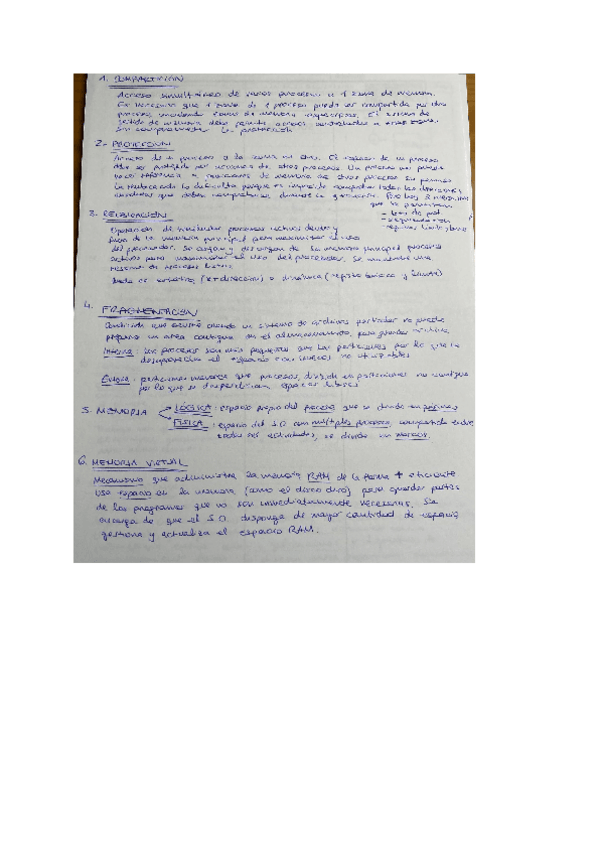 1. COMPARTICIÓN
Acceso simultáneo de varios procesos a 1 zona de memoria.
Es necesario que 1 zona de 1 proceso pueda ser compartida por otro
proceso, vinculando zonas de memoria El sistema de
gestión de memoria debe permitir accesos controlados a
sin comprometer la protección
2.- PROTECCIÓN
Acceso de 1 proceso a la zona de otro. El espacio de un proceso
debe ser protegido por acciones de otros procesos. Un proceso no puede
hacer referencia a posiciones de memoria de otros procesos sin permiso.
La reubicación lo dificulta porque es imposible comprobar todas las direcciones
que deben comprobarse durante la ejecución. Pueden 3 mecanismos
que lo permitan
- bits de prot.
- segmentación
- registros límite/base
3. REUBICACIÓN
Operación de trasladar procesos activos dentro y
fuera de la memoria principal para maximizar el uso
del procesador. Se cargan y descargan de la memoria principal procesos
activos para maximizar el uso del procesador. Se mantiene una
reserva de procesos listos.
Puede ser estática (en dirección) o dinámica (registro base y límite)
4. FRAGMENTACIÓN
Condición que ocurre cuando un sistema de archivos particular no puede
un área contigua en el almacenamiento, para guardar archivos.
Interna: los procesos son más pequeños que las particiones por lo que se
desaprovecha el espacio con huecos no utilizables
Externa: particiones menores que procesos, divide en particiones no contiguas
por lo que se desperdician espacios libres.
5. MEMORIA LÓGICA: espacio propio del proceso que se divide en páginas
FÍSICA: espacio del S.O con múltiples procesos, compartida entre
todas sus actividades, se divide en marcos.
6. MEMORIA VIRTUAL
Mecanismo que administra la memoria RAM de la forma + eficiente
Usa espacio en la memoria (como el disco duro) para guardar partes
de los programas que no son inmediatamente necesarios. Se
encarga de que el S.O. disponga de mayor cantidad de espacio,
gestiona y actualiza el espacio RAM.